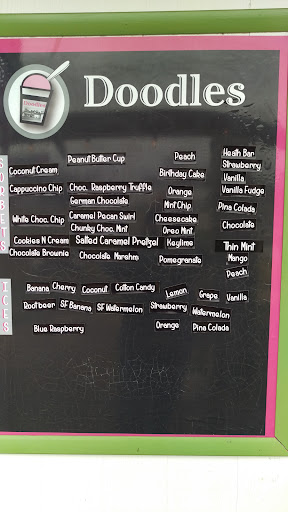 Doodles
Doodles
SORBETS
Peanut Butter Cup Peach Heath Bar
Coconut Cream Birthday Cake Strawberry
Vanilla
Cappuccino Chip Choc. Raspberry Truffle Orange Vanilla Fudge
German Chocolate Mint Chip Pina Colada
White Choc. Chip Caramel Pecan Swirl Cheesecake Chocolate
Chunky Choc. Mint Oreo Mint
Cookies N Cream Salted Caramel Pretzel Keylime Thin Mint
Chocolate Brownie Chocolate Marshm Pomegranate Mango
Peach
ICES
Banana Cherry Coconut Cotton Candy Lemon Grape Vanilla
Rootbeer SF Banana SF Watermelon Strawberry Watermelon
Blue Raspberry Orange Pina Colada